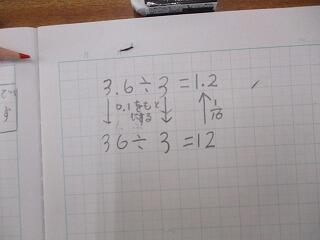 3.6÷3=1.2
0.1をもと
にする
1/10
36÷3=12